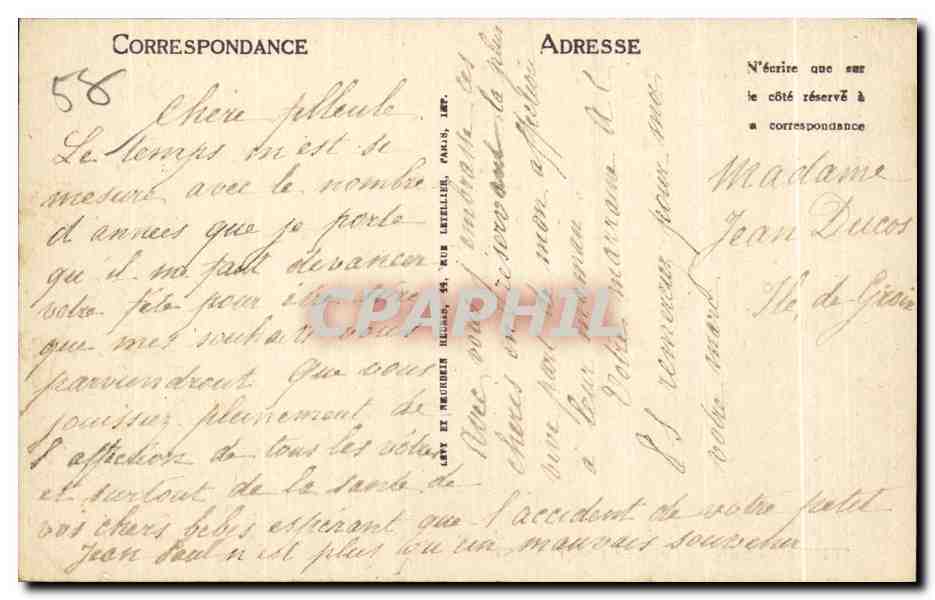 CORRESPONDANCE
ADRESSE
N'écrire que sur
le côté réservé à
a correspondance
58
Chère filleule
Le temps m est si
mesuré avec le nombre
d années que je porte
qu il me faut devancer
votre fête pour être sûre
que mes souhaits vous
parviendront Que vous
jouissiez pleinement de
l affection de tous les vôtres
et surtout de la santé de
vos chers bébés espérant que l'accident de votre petit
Jean Paul n est plus qu un mauvais souvenir
Avec vous j embrasse ces
chères en réservant la plus
vive part de mon affection
à leur maman
Votre marraine A C
PS remerciez pour moi
votre mari
Madame
Jean Ducos
Ile de Groix
LEVY ET NEURDEIN REUNIS, 44, RUE LETELLIER, PARIS, IMP.
CPAPHIL